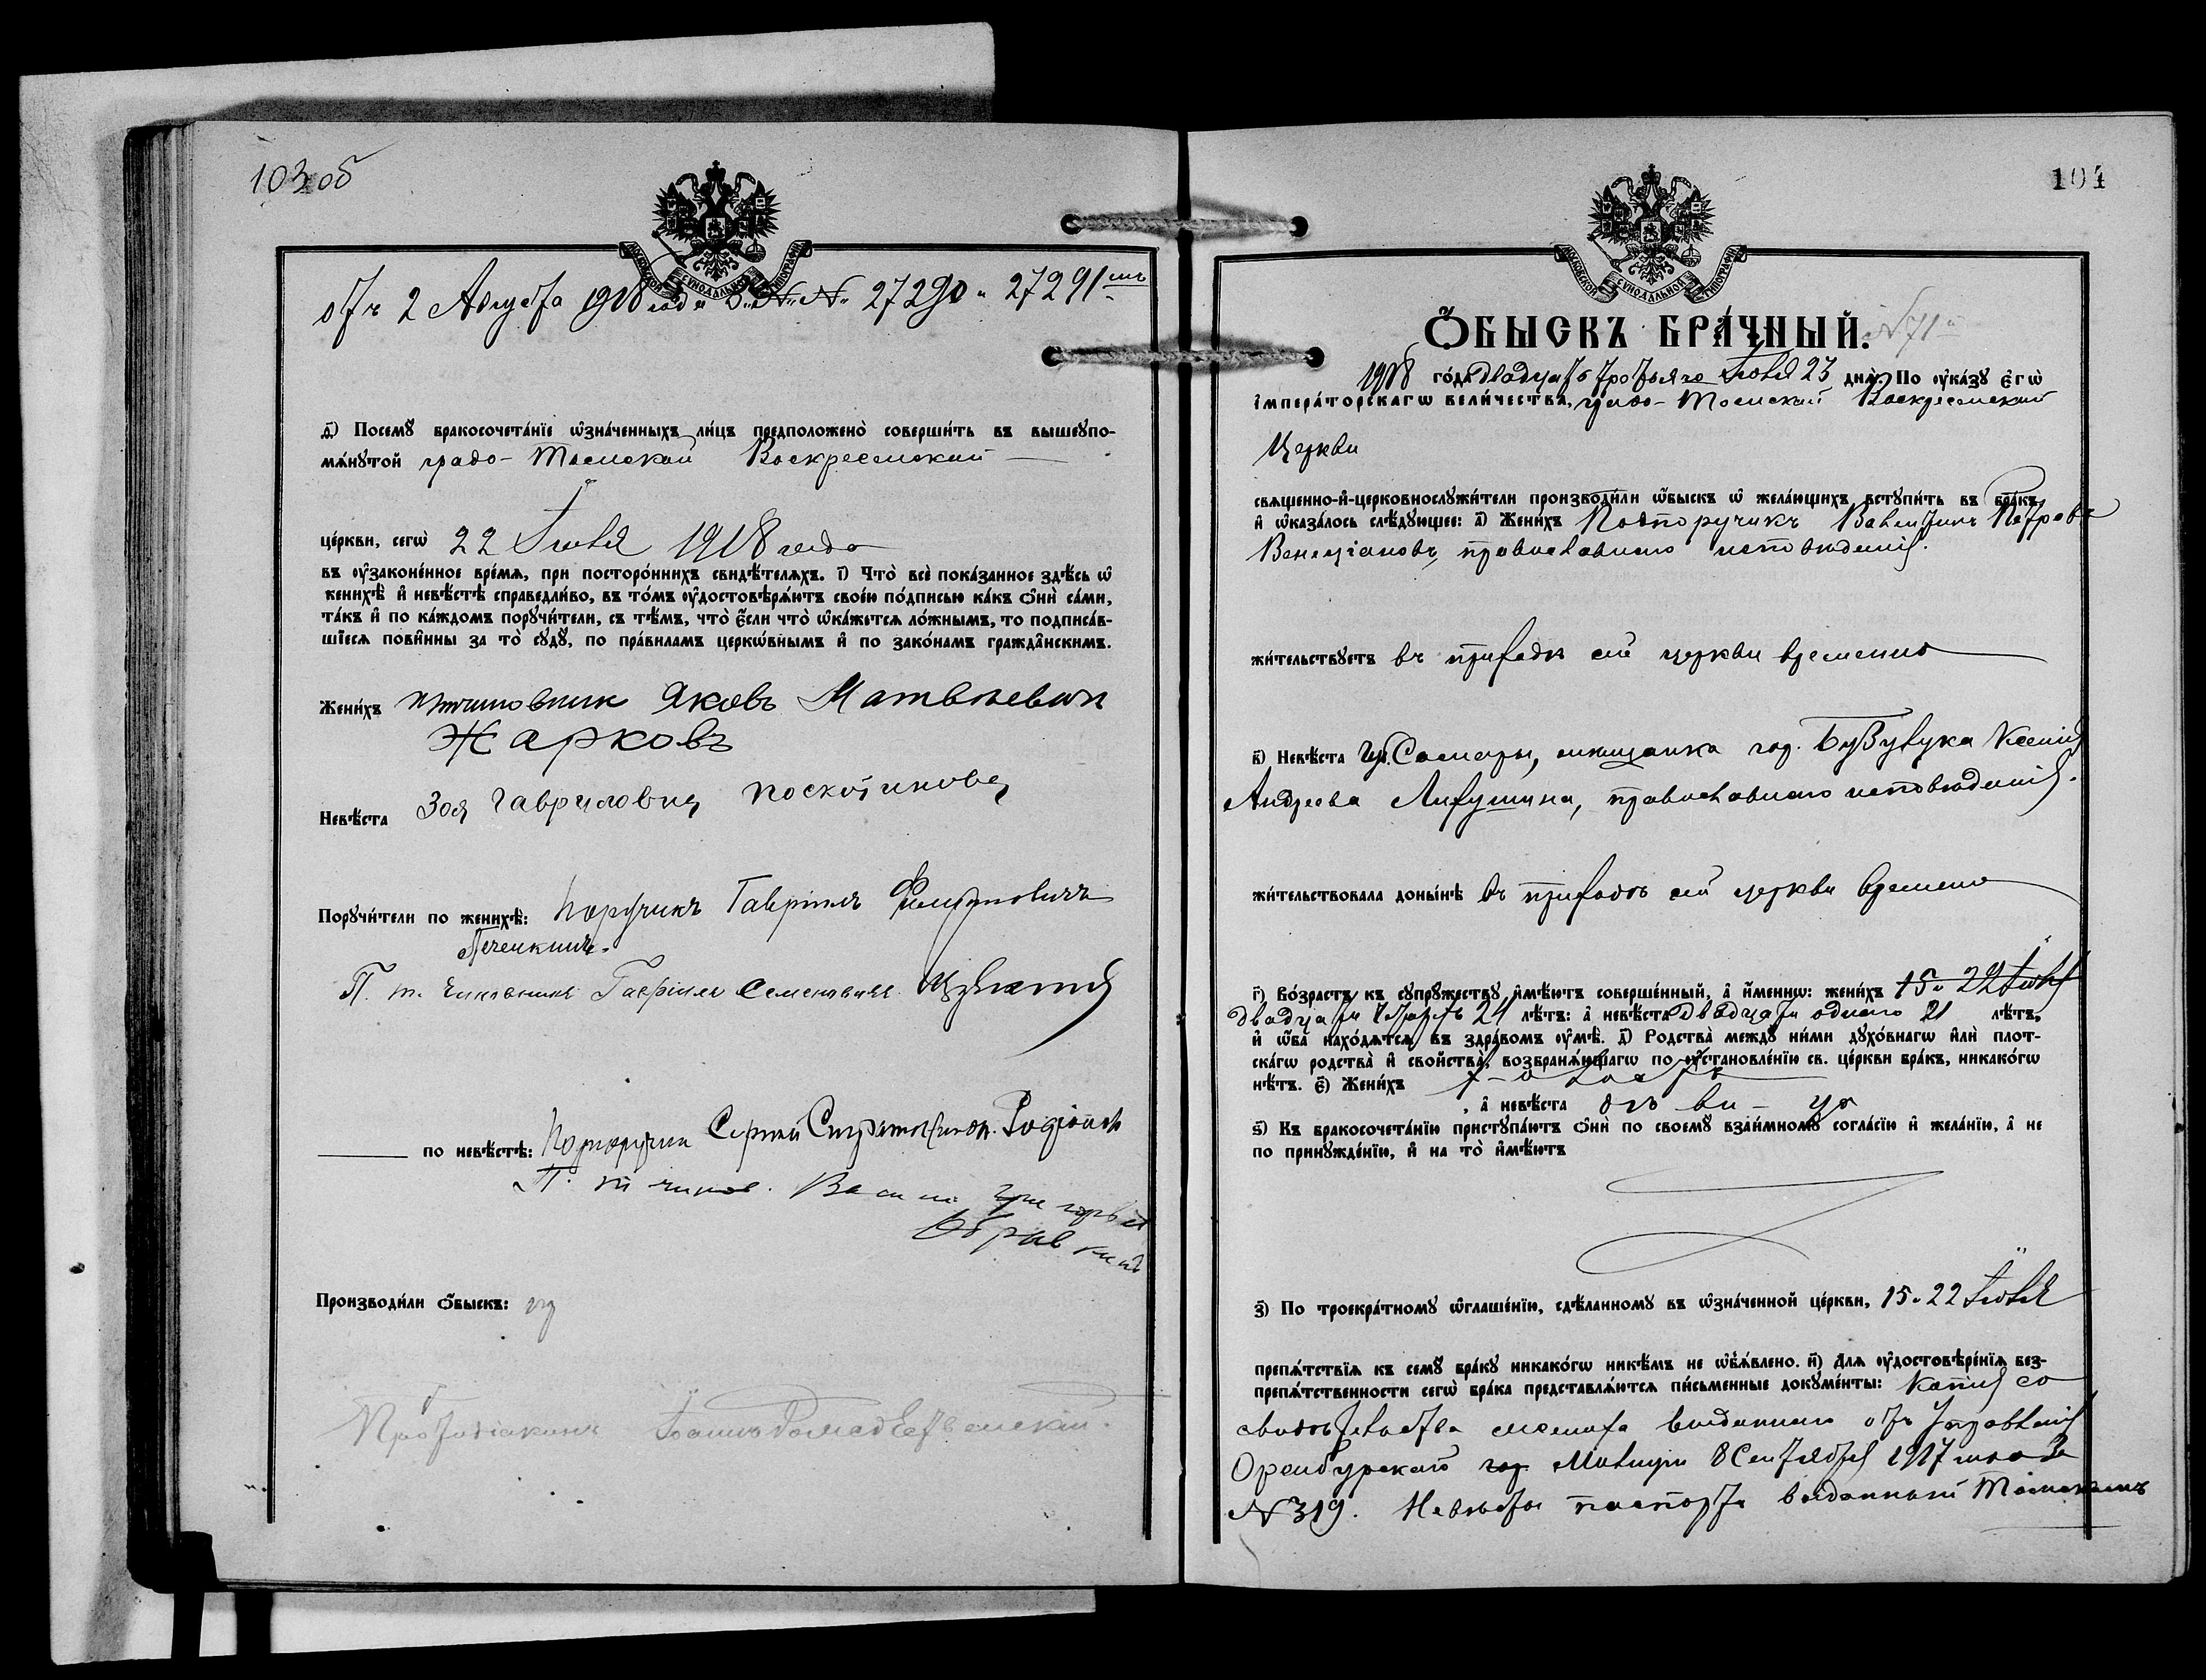 103 об
МОСКОВСКОЙ СУНОДАЛЬНОЙ ТИПОГРАФІИ
отъ 2 Августа 1918 года за №№ 27290 и 27291
ѳ҃) Посемꙋ бракосочета́нїе ѡ҆зна́ченныхъ ли́цъ предположено̀ соверши́ть въ вышеꙋпо-
мѧ́нꙋтой градо-Томской Воскресенской
це́ркви, сегѡ̀ 22 Іюля 1918 года
въ ᲂу҆зако́не́нное вре́мѧ, при посторо́ннихъ свидѣ́телѧхъ. і҃) Что̀ всѐ пока́занное здѣ́сь ѡ҆
женихѣ̀ и҆ невѣ́стѣ справедли́во, въ то́мъ ᲂу҆достовѣрѧ́ютъ своéю по́дписью ка́къ ѻ҆нѝ са́ми,
та́къ и҆ по ка́ждомъ порꙋчи́тели, съ тѣ́мъ, что̀ є҆́сли что̀ ѡ҆ка́жетсѧ ло́жнымъ, то подписа́в-
шїесѧ пови́нны за то̀ сꙋдꙋ̀, по пра́виламъ церко́внымъ и҆ по зако́намъ гражда́нскимъ.
Жени́хъ чиновник Яковъ Матвѣевич
Жарковъ
Невѣ́ста Зоя Гавриловна Поскотинова
Порꙋчи́тели по женихѣ̀: Поручикъ Гавріилъ Филипповичъ
Печенкинъ.
П. т. чиновникъ Гавріилъ Семеновичъ
по невѣ́стѣ: Подпоручик Сергѣй Родіоновъ
П. т. чинов. Васи
Производи́ли ѻ҆́быскъ:
Протодіаконъ Іоаннъ
104
МОСКОВСКОЙ СУНОДАЛЬНОЙ ТИПОГРАФІИ
Ѻ҆́БЫСКЪ БРА́ЧНЫЙ. № 71
1918 го́да двадцать третьяго Іюля 23 днѧ̀. По ᲂу҆ка́зꙋ є҆гѡ̀
і҆мпера́торскагѡ вели́чества, градо-Томской Воскресенской
Церкви
свѧщенно-и҆-церковнослꙋжи́тели производи́ли ѻ҆́быскъ ѡ҆ жела́ющихъ встꙋпи́ть въ бра́къ,
и҆ ѡ҆каза́лось слѣ́дꙋющее: а҃) Жени́хъ Подпоручикъ Валентинъ Петровъ
Венеціановъ, православнаго исповѣданія.
жи́тельствꙋетъ въ приходѣ сей церкви временно
в҃) Невѣ́ста Гр. Самары, мѣщанка гор. Бузулука Ксенія
Андреева Лихушина, православнаго исповѣданія.
жи́тельствовала доны́нѣ въ приходѣ сей церкви временно
г҃) Во́зрастъ къ сꙋпрꙋ́жествꙋ и҆мѣ́ютъ соверше́нный, а҆ и҆́менно: жени́хъ 15 и 22 Іюля
двадцати 24 лѣ́тъ: а҆ невѣ́ста двадцати одного 21 лѣ́тъ,
и҆ ѻ҆́ба нахо́дѧтсѧ въ здра́вомъ ᲂу҆мѣ̀. д҃) Родства̀ междꙋ̀ ни́ми дꙋхо́внагѡ и҆лѝ плот-
ска́гѡ родства̀ и҆ свойства̀, возбранѧ́ющагѡ по ᲂу҆становле́нїю св. це́ркви бра́къ, никако́гѡ
нѣ́тъ. є҃) Жени́хъ холостъ
, а҆ невѣ́ста дѣвица
ѕ҃) Къ бракосочета́нїю пристꙋпа́ютъ ѻ҆нѝ по своемꙋ̀ взаи́мномꙋ согла́сїю и҆ жела́нїю, а҆ не
по принꙋжде́нїю, и҆ на то̀ и҆мѣ́ютъ
з҃) По троекра́тномꙋ ѡ҆глаше́нїю, сдѣ́ланномꙋ въ ѡ҆зна́ченной це́ркви, 15 и 22 Іюля
препѧ́тствїѧ къ семꙋ̀ бра́кꙋ никако́гѡ никѣ́мъ не ѡ҆б̾ѧ́влено. и҃) Длѧ ᲂу҆достовѣре́нїѧ без-
препѧ́тственности сегѡ̀ бра́ка представлѧ́ютсѧ пи́сьменные докꙋме́нты: Копія со
свидѣтельства жениха выданнаго отъ Управленія
Оренбургской гор. Милиціи 8 Сентября 1917 года за
№ 319. Невѣсты паспортъ выданный Томскимъ